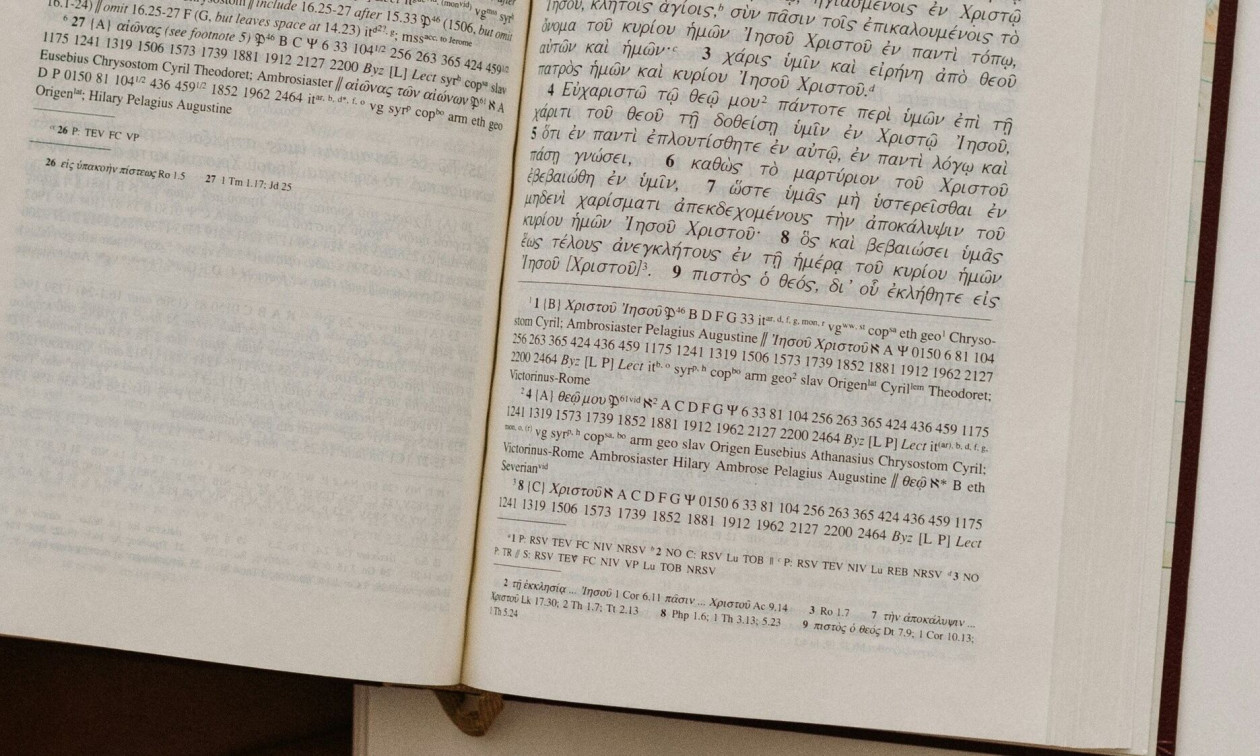 16.1-24) // omit 16.25-27 F (G, but leaves space at 14.23) itᵈ²?, g; mssᵃᶜᶜ· ᵗᵒ ᴶᵉʳᵒᵐᵉ
include 16.25-27 after 15.33 𝔓⁴⁶ (1506, but omit
⁶ 27 {A} αἰῶνας (see footnote 5) 𝔓⁴⁶ B C Ψ 6 33 104¹ᐟ² 256 263 365 424 459¹ᐟ²
1175 1241 1319 1506 1573 1739 1881 1912 2127 2200 Byz [L] Lect syrʰ copˢᵃ slav
Eusebius Chrysostom Cyril Theodoret; Ambrosiaster // αἰῶνας τῶν αἰώνων 𝔓⁶¹ ℵ A
D P 0150 81 104¹ᐟ² 436 459¹ᐟ² 1852 1962 2464 itᵃʳ, ᵇ, ᵈ*, ᶠ, ᵒ vg syrᵖ copᵇᵒ arm eth geo
Origenˡᵃᵗ; Hilary Pelagius Augustine
26 P: TEV FC VP
26 εἰς ὑπακοὴν πίστεως Ro 1.5 27 1 Tm 1.17; Jd 25
Ἰησοῦ, κλητοῖς ἁγίοις,ᵇ σὺν πᾶσιν τοῖς ἐπικαλουμένοις τὸ
ὄνομα τοῦ κυρίου ἡμῶν Ἰησοῦ Χριστοῦ ἐν παντὶ τόπῳ,
αὐτῶν καὶ ἡμῶν·ᶜ 3 χάρις ὑμῖν καὶ εἰρήνη ἀπὸ θεοῦ
πατρὸς ἡμῶν καὶ κυρίου Ἰησοῦ Χριστοῦ.ᵈ
4 Εὐχαριστῶ τῷ θεῷ μου² πάντοτε περὶ ὑμῶν ἐπὶ τῇ
χάριτι τοῦ θεοῦ τῇ δοθείσῃ ὑμῖν ἐν Χριστῷ Ἰησοῦ,
5 ὅτι ἐν παντὶ ἐπλουτίσθητε ἐν αὐτῷ, ἐν παντὶ λόγῳ καὶ
πάσῃ γνώσει, 6 καθὼς τὸ μαρτύριον τοῦ Χριστοῦ
ἐβεβαιώθη ἐν ὑμῖν, 7 ὥστε ὑμᾶς μὴ ὑστερεῖσθαι ἐν
μηδενὶ χαρίσματι ἀπεκδεχομένους τὴν ἀποκάλυψιν τοῦ
κυρίου ἡμῶν Ἰησοῦ Χριστοῦ· 8 ὃς καὶ βεβαιώσει ὑμᾶς
ἕως τέλους ἀνεγκλήτους ἐν τῇ ἡμέρᾳ τοῦ κυρίου ἡμῶν
Ἰησοῦ [Χριστοῦ]³. 9 πιστὸς ὁ θεός, δι' οὗ ἐκλήθητε εἰς
¹1 {B} Χριστοῦ Ἰησοῦ 𝔓⁴⁶ B D F G 33 itᵃʳ, ᵈ, ᶠ, ᵍ, ᵐᵒⁿ, ʳ vgʷʷ, ˢᵗ copˢᵃ eth geo¹ Chryso-
stom Cyril; Ambrosiaster Pelagius Augustine // Ἰησοῦ Χριστοῦ ℵ A Ψ 0150 6 81 104
256 263 365 424 436 459 1175 1241 1319 1506 1573 1739 1852 1881 1912 1962 2127
2200 2464 Byz [L P] Lect itᵇ, ᵒ syrᵖ, ʰ copᵇᵒ arm geo² slav Origenˡᵃᵗ Cyrilˡᵉᵐ Theodoret;
Victorinus-Rome
²4 {A} θεῷ μου 𝔓⁶¹ᵛⁱᵈ ℵ² A C D F G Ψ 6 33 81 104 256 263 365 424 436 459 1175
1241 1319 1573 1739 1852 1881 1912 1962 2127 2200 2464 Byz [L P] Lect it⁽ᵃʳ⁾, ᵇ, ᵈ, ᶠ, ᵍ,
ᵐᵒⁿ, ᵒ, ⁽ʳ⁾ vg syrᵖ, ʰ copˢᵃ, ᵇᵒ arm geo slav Origen Eusebius Athanasius Chrysostom Cyril;
Victorinus-Rome Ambrosiaster Hilary Ambrose Pelagius Augustine // θεῷ ℵ* B eth
Severianᵛⁱᵈ
³8 {C} Χριστοῦ ℵ A C D F G Ψ 0150 6 33 81 104 256 263 365 424 436 459 1175
1241 1319 1506 1573 1739 1852 1881 1912 1962 2127 2200 2464 Byz [L P] Lect
ᵃ1 P: RSV TEV FC NIV NRSV ᵇ2 NO C: RSV Lu TOB // ᶜ P: RSV TEV NIV Lu REB NRSV ᵈ3 NO
P: TR // S: RSV TEV FC NIV VP Lu TOB NRSV
2 τῇ ἐκκλησίᾳ ... Ἰησοῦ 1 Cor 6.11 πᾶσιν ... Χριστοῦ Ac 9.14 3 Ro 1.7 7 τὴν ἀποκάλυψιν ...
Χριστοῦ Lk 17.30; 2 Th 1.7; Tt 2.13 8 Php 1.6; 1 Th 3.13; 5.23 9 πιστὸς ὁ θεός Dt 7.9; 1 Cor 10.13;
1 Th 5.24